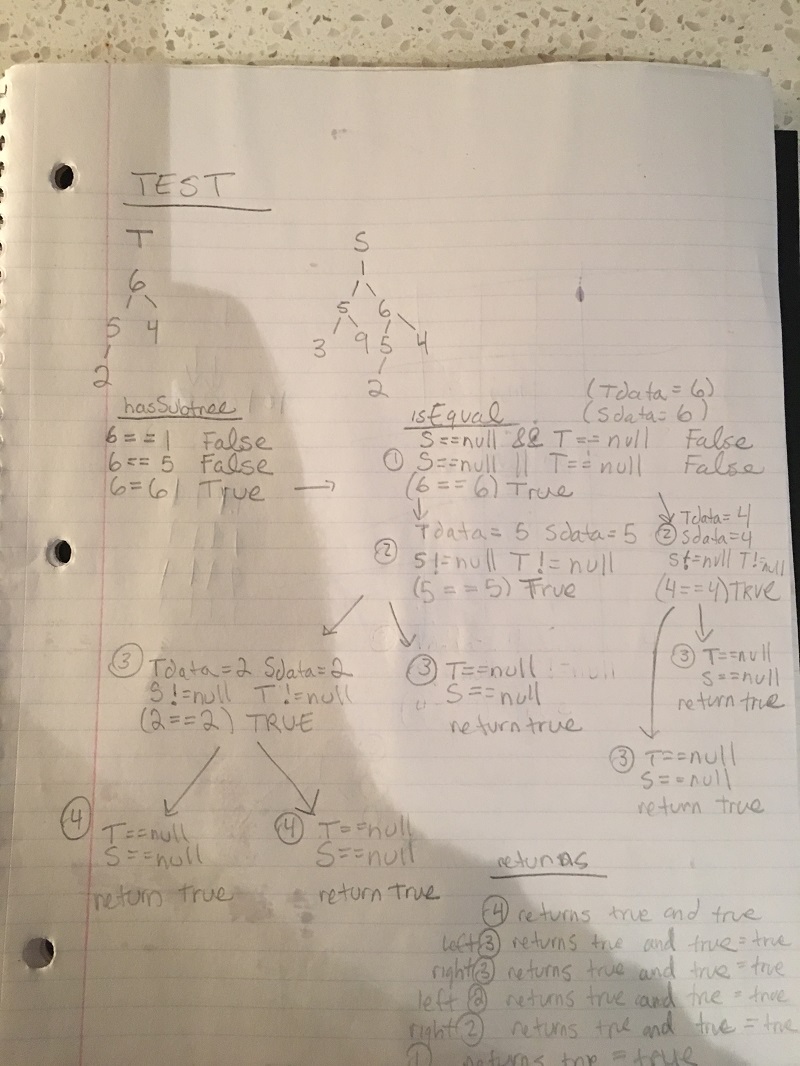 TEST
T
6
5 4
2
S
1
5 6
3 9 5 4
2
hasSubtree
6 == 1 False
6 == 5 False
6 = 6 | True
isEqual
(Tdata = 6)
(Sdata = 6)
S==null && T==null False
① S==null || T==null False
(6 == 6) True
② Tdata = 5 Sdata = 5
S!=null T!=null
(5 == 5) True
② Tdata=4
Sdata=4
S!=null T!=null
(4==4) TRUE
③ Tdata=2 Sdata=2
S!=null T!=null
(2==2) TRUE
③ T==null
S==null
return true
③ T==null
S==null
return true
③ T==null
S==null
return true
④ T==null
S==null
return true
④ T==null
S==null
return true
returns
④ returns true and true
left ③ returns true and true = true
right ③ returns true and true = true
left ② returns true and true = true
right ② returns true and true = true
① returns true = true